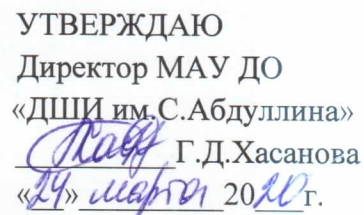 УТВЕРЖДАЮ
Директор МАУ ДО
«ДШИ им.С.Абдуллина»
Г.Д.Хасанова
«24» марта 2020г.